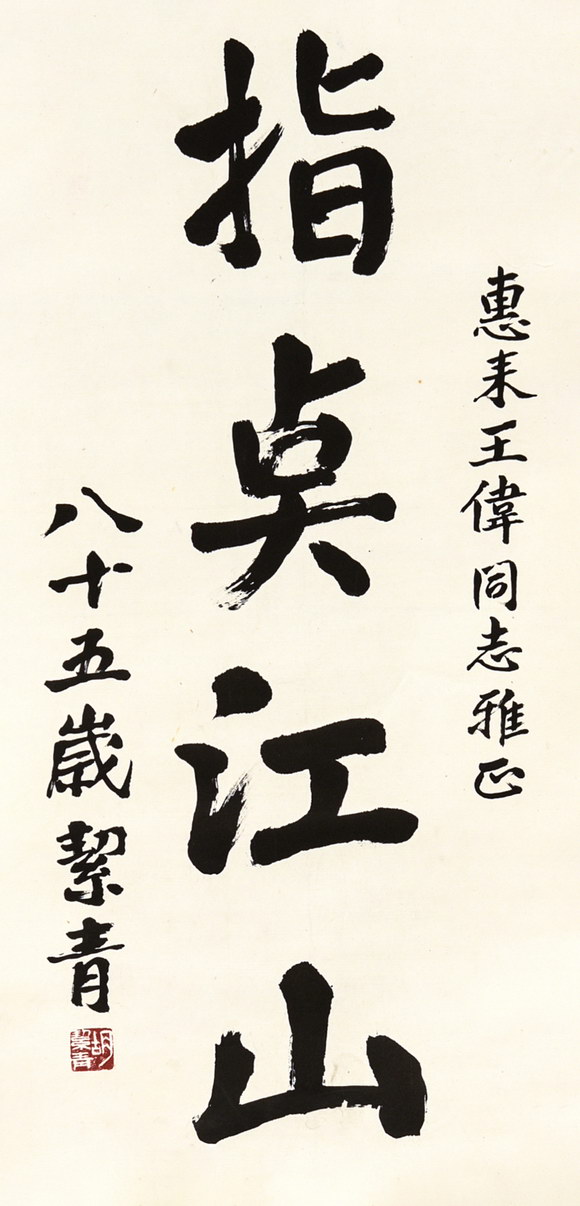 惠来王偉同志雅正
指点江山
八十五歲絜青
胡絜青